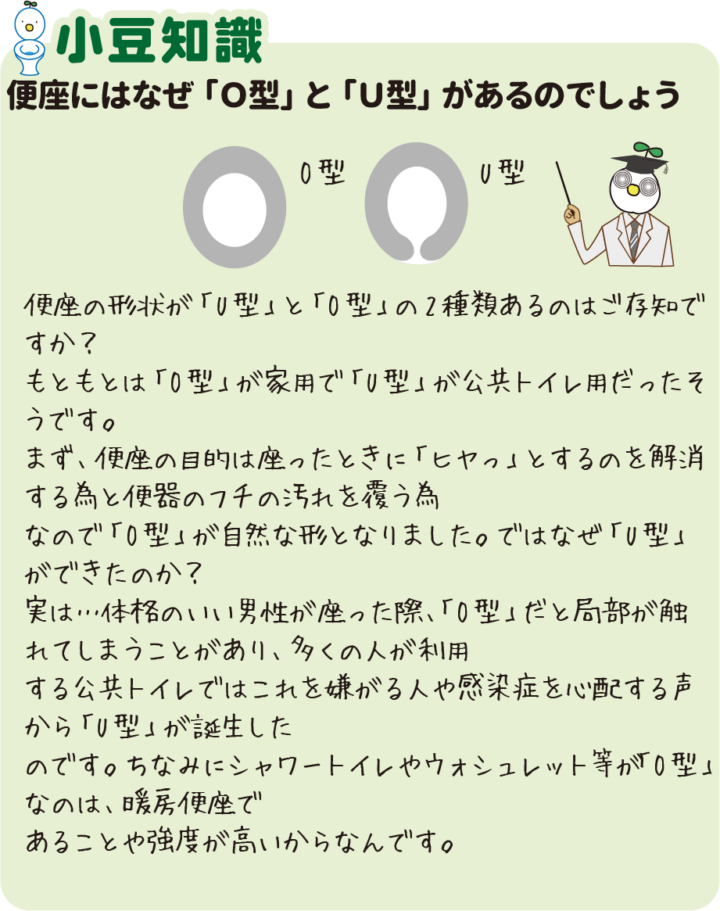 小豆知識
便座にはなぜ「O型」と「U型」があるのでしょう
O型
U型
便座の形状が「U型」と「O型」の2種類あるのはご存知で
すか?
もともとは「O型」が家用で「U型」が公共トイレ用だったそ
うです。
まず、便座の目的は座ったときに「ヒヤっ」とするのを解消
する為と便器のフチの汚れを覆う為
なので「O型」が自然な形となりました。ではなぜ「U型」
ができたのか?
実は…体格のいい男性が座った際、「O型」だと局部が触
れてしまうことがあり、多くの人が利用
する公共トイレではこれを嫌がる人や感染症を心配する声
から「U型」が誕生した
のです。ちなみにシャワートイレやウォシュレット等が「O型」
なのは、暖房便座で
あることや強度が高いからなんです。